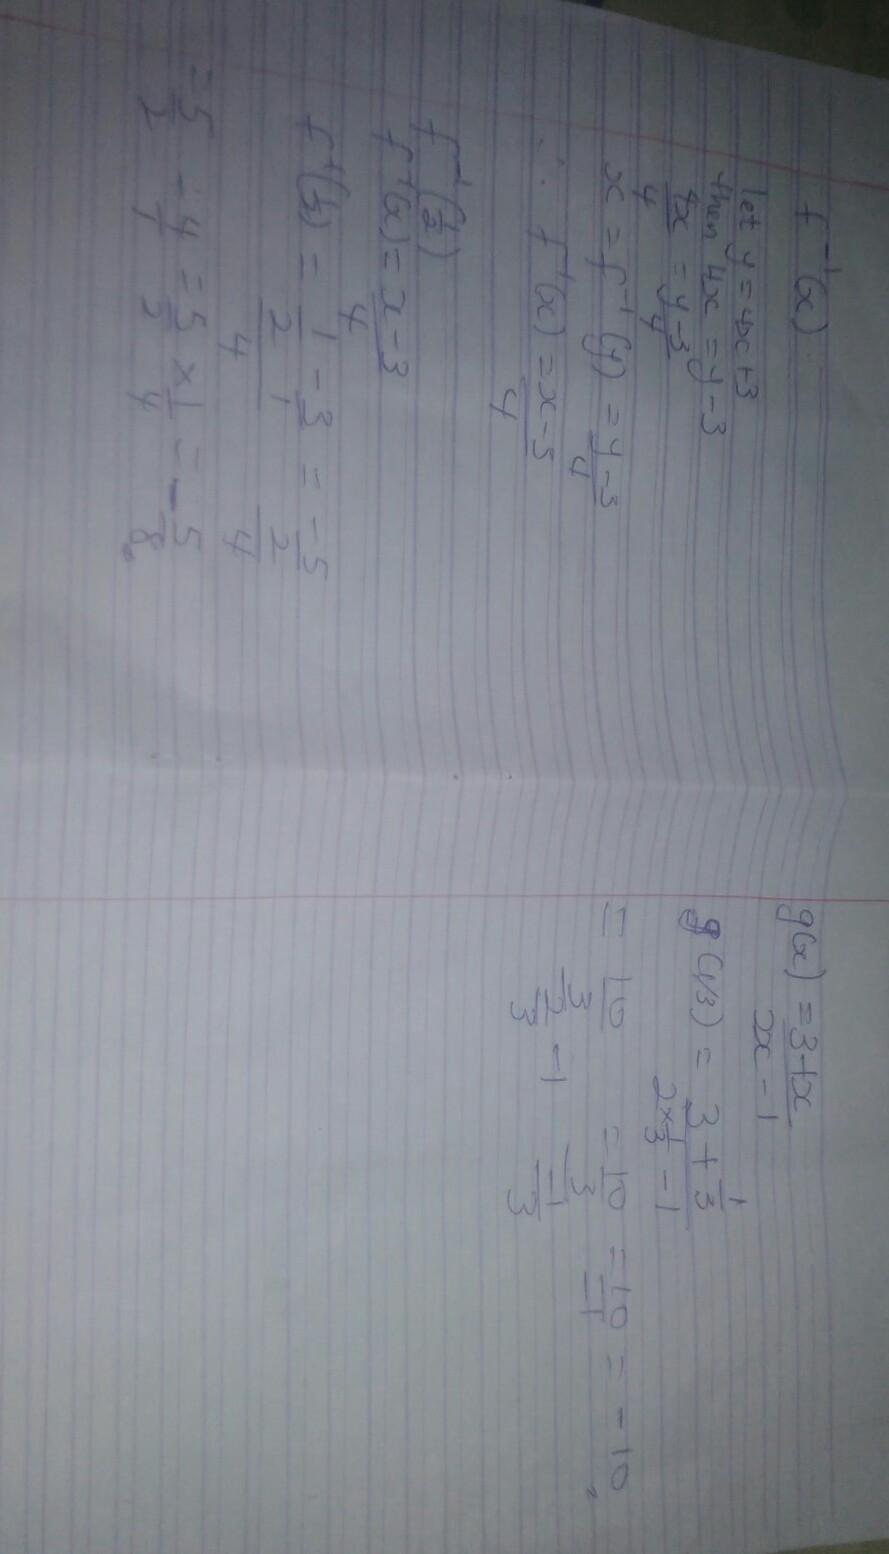 f⁻¹(x)
let y = 4x+3
then 4x = y-3
4x/4 = y-3/4
x = f⁻¹(y) = y-3/4
∴ f⁻¹(x) = x-5/4
f⁻¹(1/2)
f⁻¹(x) = x-3/4
f⁻¹(½) = 1/2 - 3/1 / 4 = -5/2 / 4
= 5/2 - 4/1 = 5/2 × 1/4 = -5/8
g(x) = 3+x / 2x-1
g(1/3) = 3 + 1/3 / 2×1/3 - 1
= 10/3 / 2/3 - 1 = 10/3 / -1/3 = 10/-1 = -10